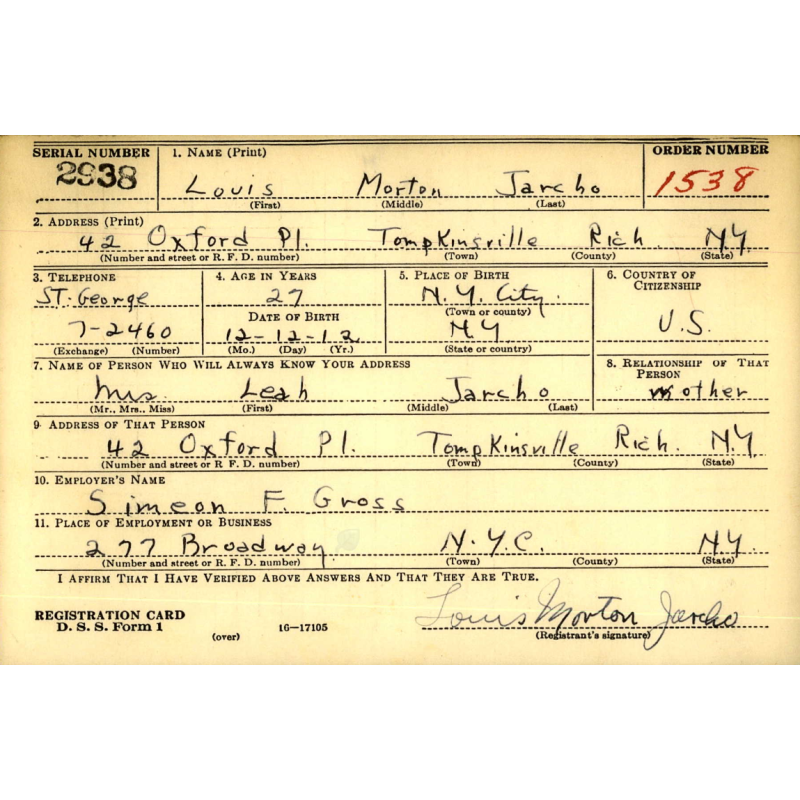 SERIAL NUMBER 1. NAME (Print) ORDER NUMBER
2938 Louis Morton Jarcho 1538
(First) (Middle) (Last)
2. ADDRESS (Print)
42 Oxford Pl. Tompkinsville Rich. N.Y.
(Number and street or R. F. D. number) (Town) (County) (State)
3. TELEPHONE 4. AGE IN YEARS 5. PLACE OF BIRTH 6. COUNTRY OF CITIZENSHIP
ST. George 27 N.Y. City.
(Town or county)
DATE OF BIRTH
7-2460 12-12-12 N.Y U.S.
(Exchange) (Number) (Mo.) (Day) (Yr.) (State or country)
7. NAME OF PERSON WHO WILL ALWAYS KNOW YOUR ADDRESS 8. RELATIONSHIP OF THAT PERSON
Mrs Leah Jarcho mother
(Mr., Mrs., Miss) (First) (Middle) (Last)
9 ADDRESS OF THAT PERSON
42 Oxford Pl. Tompkinsville Rich. N.Y
(Number and street or R. F. D. number) (Town) (County) (State)
10. EMPLOYER'S NAME
Simeon F. Gross
11. PLACE OF EMPLOYMENT OR BUSINESS
277 Broadway N.Y.C. N.Y.
(Number and street or R. F. D. number) (Town) (County) (State)
I AFFIRM THAT I HAVE VERIFIED ABOVE ANSWERS AND THAT THEY ARE TRUE.
REGISTRATION CARD
D. S. S. Form 1
(over) 16—17105
Louis Morton Jarcho
(Registrant's signature)